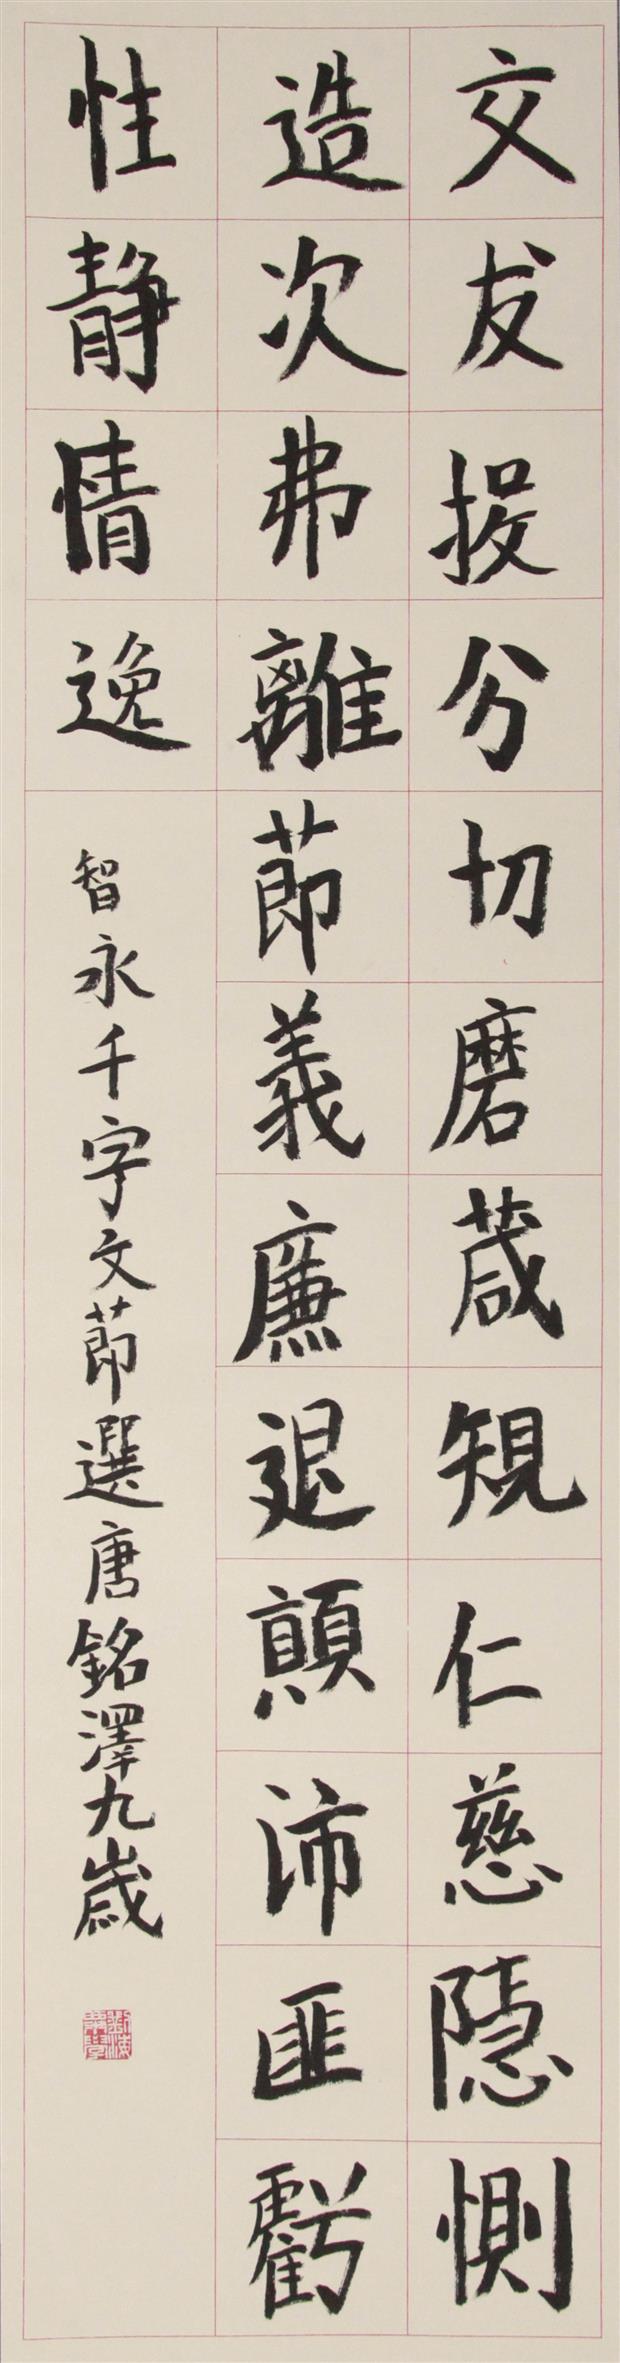 交友投分切磨葴規仁慈隱惻
造次弗離節義廉退顛沛匪虧
性靜情逸
智永千字文節選唐銘澤九歲